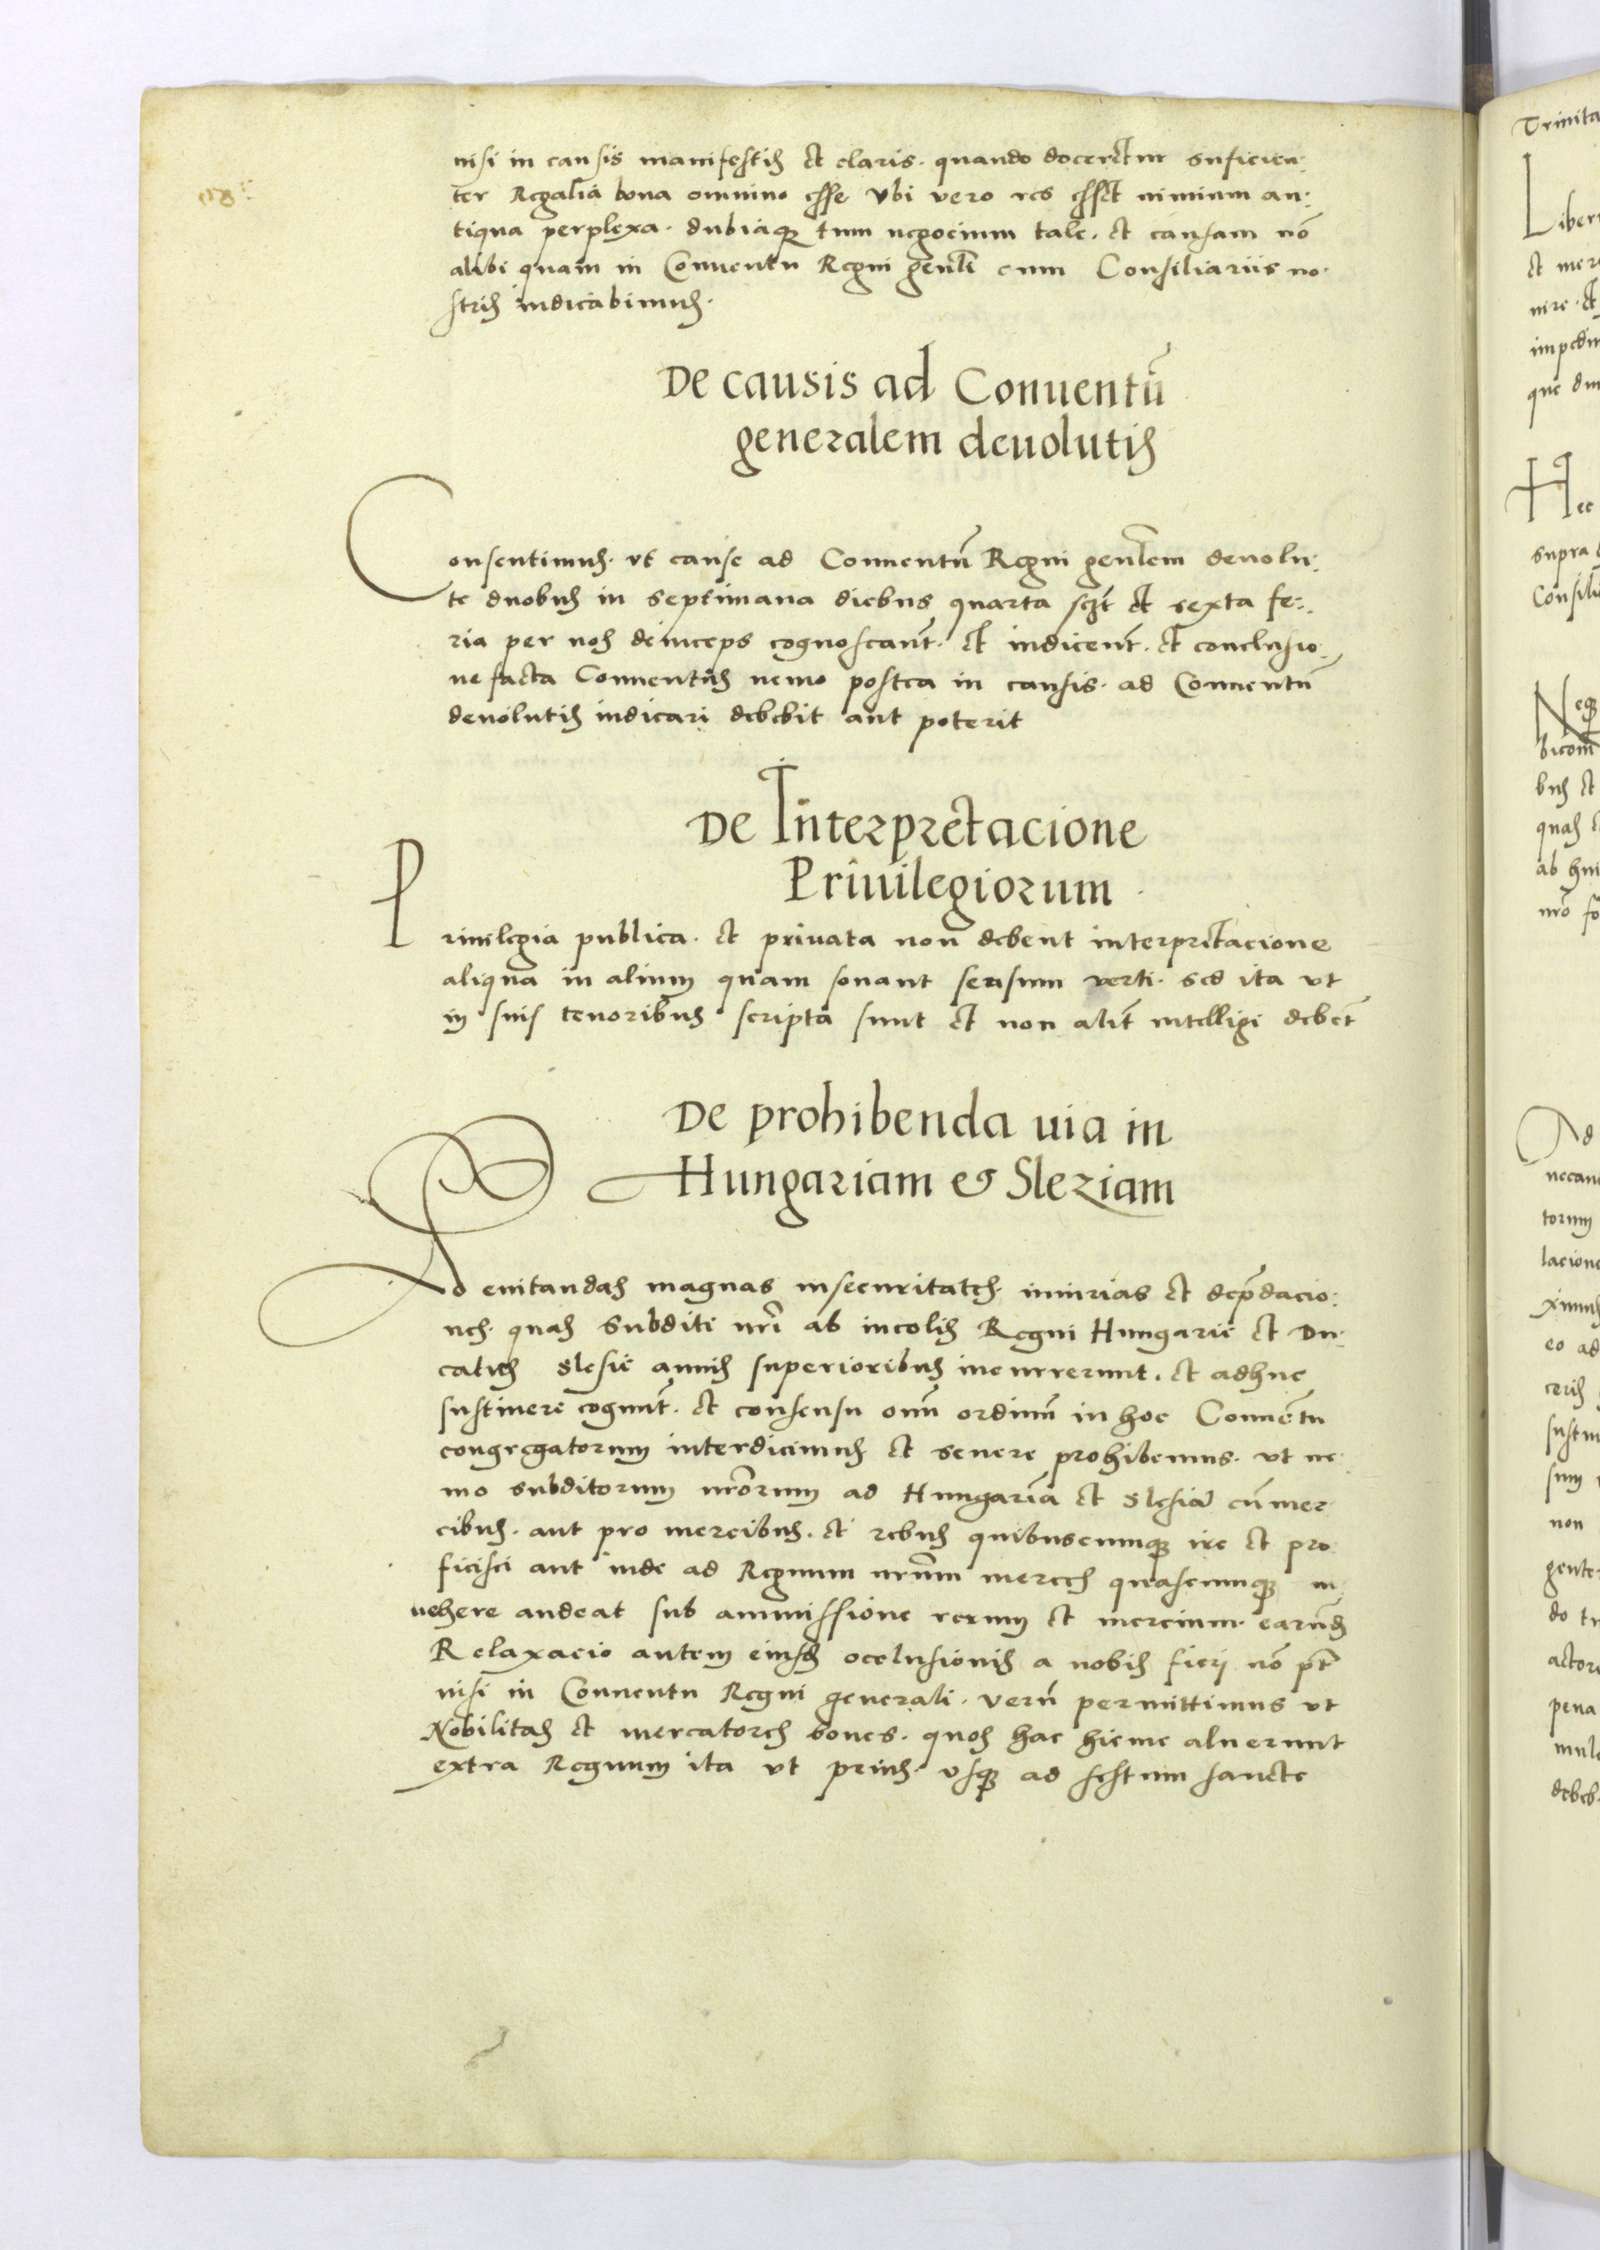 nisi in causis manifestis et claris. quando doceretur suficien:
ter Regalia bona omnino esse Vbi vero res esset nimium an:
tiqua perplexa. dubiaq tum negocium tale. et causam nō
alibi quam in Conuentu Regni genlī cum Consiliariis no.
stris iudicabimus.
De causis ad Conuentū
generalem deuolutis
Consentimus. vt cause ad Conuentū Regni genlem deuolu:
te duobus in septimana diebus quarta sczt et sexta fe:
ria per nos deinceps cognoscant. et iudicent. et conclusio
ne facta Conuentus nemo postea in causis. ad Conuentū
deuolutis iudicari debebit aut poterit
De Interpretacione
Priuilegiorum
Priuilegia publica. et priuata non debent interpretacione
aliqua in alium quam sonant sensum verti. sed ita vt
in suis tenoribus scripta sunt et non alit intelligi debet
De prohibenda uia in
Hungariam & Sleziam
Ad euitandas magnas insecuritates. iniurias et depdacio:
nes. quas subditi nri ab incolis Regni Hungarie et Du.
catus Slesie annis superioribus incurrerunt. et adhuc
sustinere cogunt. et consensu omū ordinū in hoc Conuētu
congregatorum interdicimus et seuere prohibemus. vt ne.
mo subditorum nrorum ad Hungariā et Slesiā cū mer
cibus. aut pro mercibus. et rebus quibuscumq ire et pro
ficisci aut inde ad Regnum nrum merces quascumq in
uehere audeat sub ammissione rerum et mercium. earūd
Relaxacio autem eiusd occlusionis a nobis fieri nō pt
nisi in Conuentu Regni generali. verū permittimus vt
Nobilitas et mercatores boues. quos hac hieme aluerunt
extra Regnum ita vt prius. vsq ad festum sancte
Trinita
Liber
impedim
Hec
supra
Consili
Neq
Ad
torum
lacione
eo ad
non
do
actor
pena
debeb